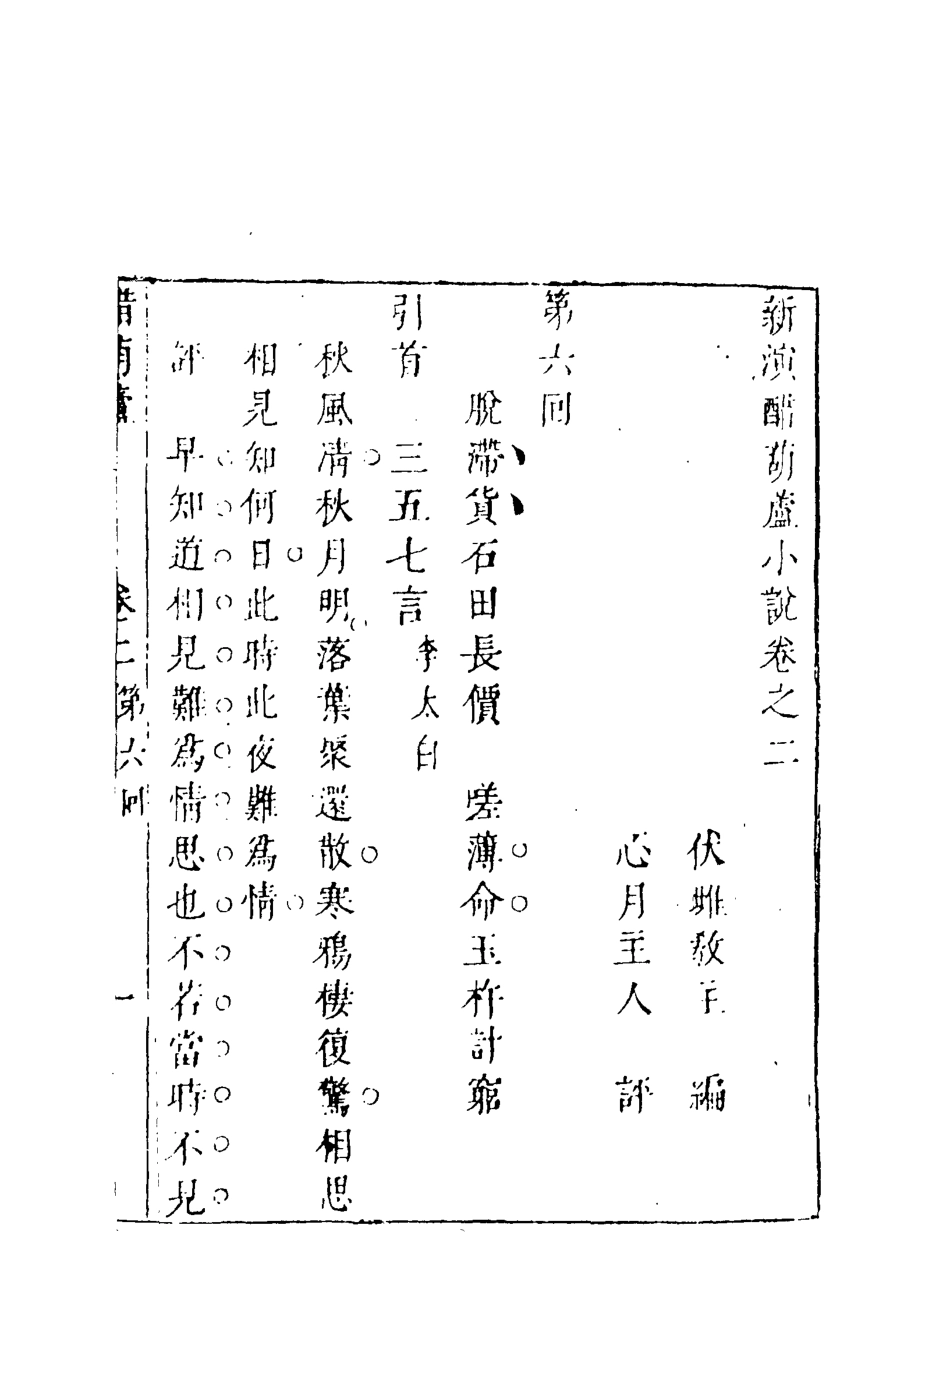 新演醋葫蘆小說卷之二
伏雌教主　編
心月主人　評
第六回
脫滯貨石田長價　嗟薄命玉杵計窮
引首　三五七言　李太白
秋風清秋月明落葉聚還散寒鴉棲復驚相思
相見知何日此時此夜難爲情
評　早知道相見難爲情思也不若當時不見
醋葫蘆　卷二第六回　一